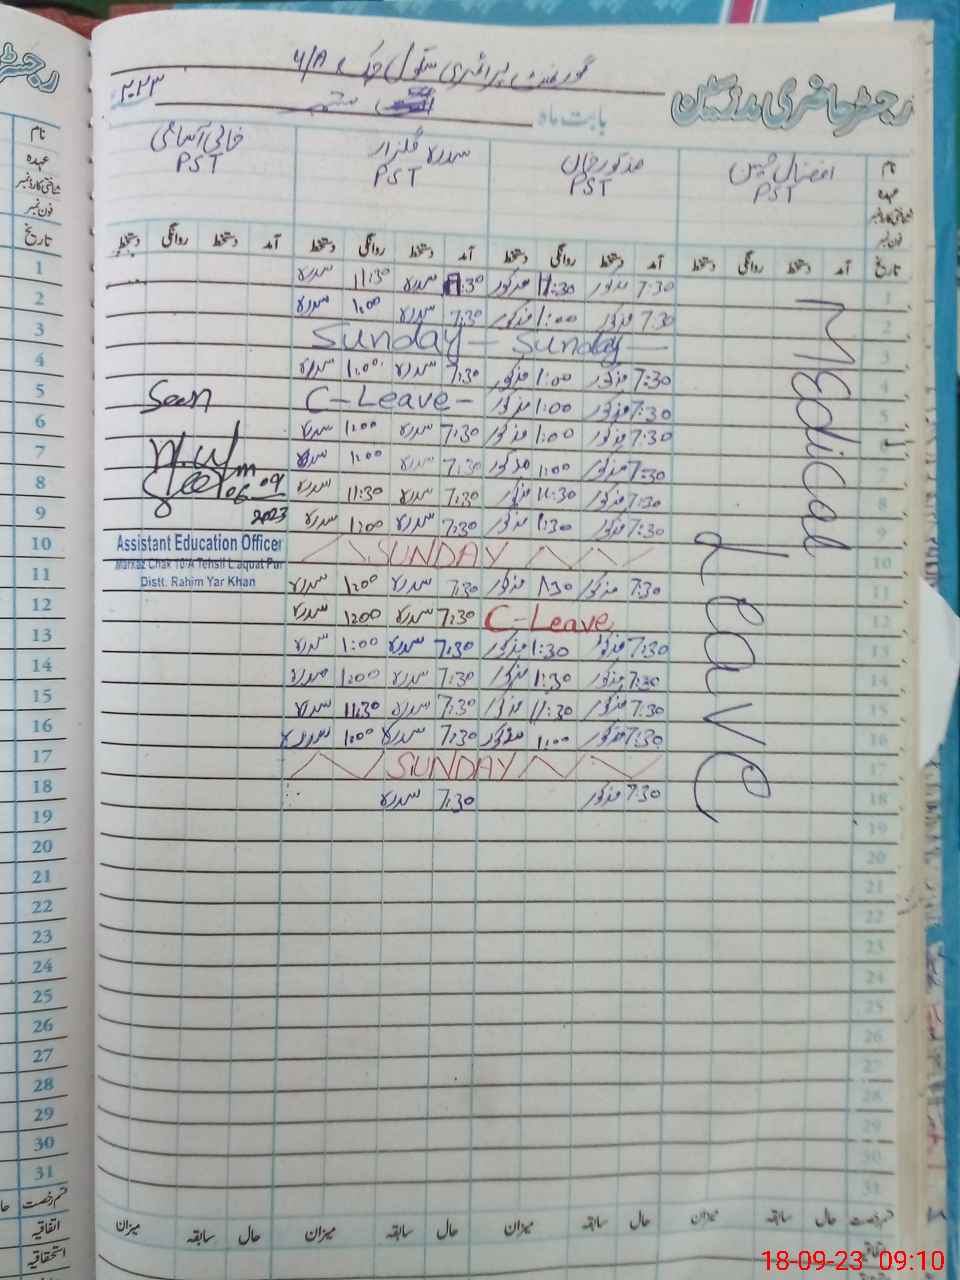 رجسٹر حاضری مدرسین
گورنمنٹ پرائمری سکول چک 4/A
بابت ماہ ستمبر ۲۰۲۳
نام افضال حسین مذکور خان سدرہ گلزار خالی آسامی
عہدہ PST PST PST PST
شناختی کارڈ نمبر
فون نمبر
تاریخ آمد دستخط روانگی دستخط آمد دستخط روانگی دستخط آمد دستخط روانگی دستخط آمد دستخط روانگی دستخط
Medical Leave
1 7:30 مذکور 11:30 مذکور 7:30 سدرہ 11:30 سدرہ
2 7:30 مذکور 1:00 مذکور 7:30 سدرہ 1:00 سدرہ
3 Sunday — Sunday —
4 7:30 مذکور 1:00 مذکور 7:30 سدرہ 1:00 سدرہ
5 7:30 مذکور 1:00 مذکور C-Leave-
6 7:30 مذکور 1:00 مذکور 7:30 سدرہ 1:00 سدرہ
7 7:30 مذکور 1:00 مذکور 7:30 سدرہ 1:00 سدرہ
8 7:30 مذکور 11:30 مذکور 7:30 سدرہ 11:30 سدرہ
9 7:30 مذکور 1:30 مذکور 7:30 سدرہ 1:00 سدرہ
10 SUNDAY
11 7:30 مذکور 1:30 مذکور 7:30 سدرہ 1:00 سدرہ
12 C-Leave 7:30 سدرہ 1:00 سدرہ
13 7:30 مذکور 1:30 مذکور 7:30 سدرہ 1:00 سدرہ
14 7:30 مذکور 1:30 مذکور 7:30 سدرہ 1:00 سدرہ
15 7:30 مذکور 11:30 مذکور 7:30 سدرہ 11:30 سدرہ
16 7:30 مذکور 1:00 مذکور 7:30 سدرہ 1:00 سدرہ
17 SUNDAY
18 7:30 مذکور 7:30 سدرہ
19
20
21
22
23
24
25
26
27
28
29
30
31
Seen
06-09
2023
Assistant Education Officer
Markaz Chak 10/A Tehsil Liaquat Pur
Distt. Rahim Yar Khan
قسم رخصت حال سابقہ میزان حال سابقہ میزان حال سابقہ میزان حال سابقہ میزان
اتفاقیہ
رجسٹر
نام
عہدہ
شناختی کارڈ نمبر
فون نمبر
تاریخ
1
2
3
4
5
6
7
8
9
10
11
12
13
14
15
16
17
18
19
20
21
22
23
24
25
26
27
28
29
30
31
قسم رخصت
اتفاقیہ
استحقاقیہ
18-09-23 09:10